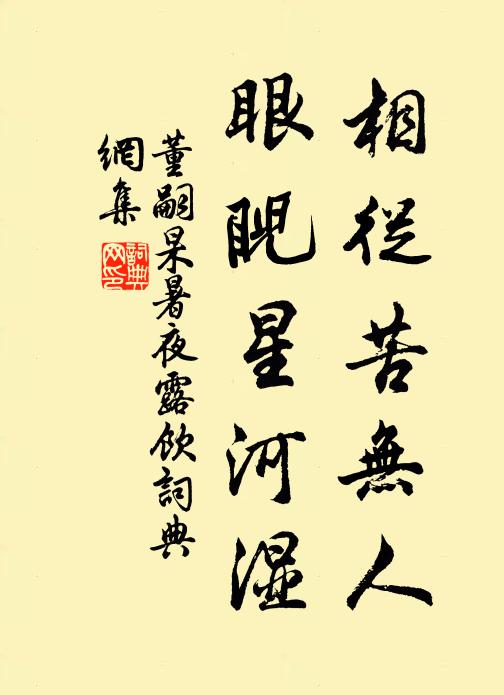 相從苦無人
眼睨星河湿
董嗣杲暑夜露飲詞典
網集
詞典
网印